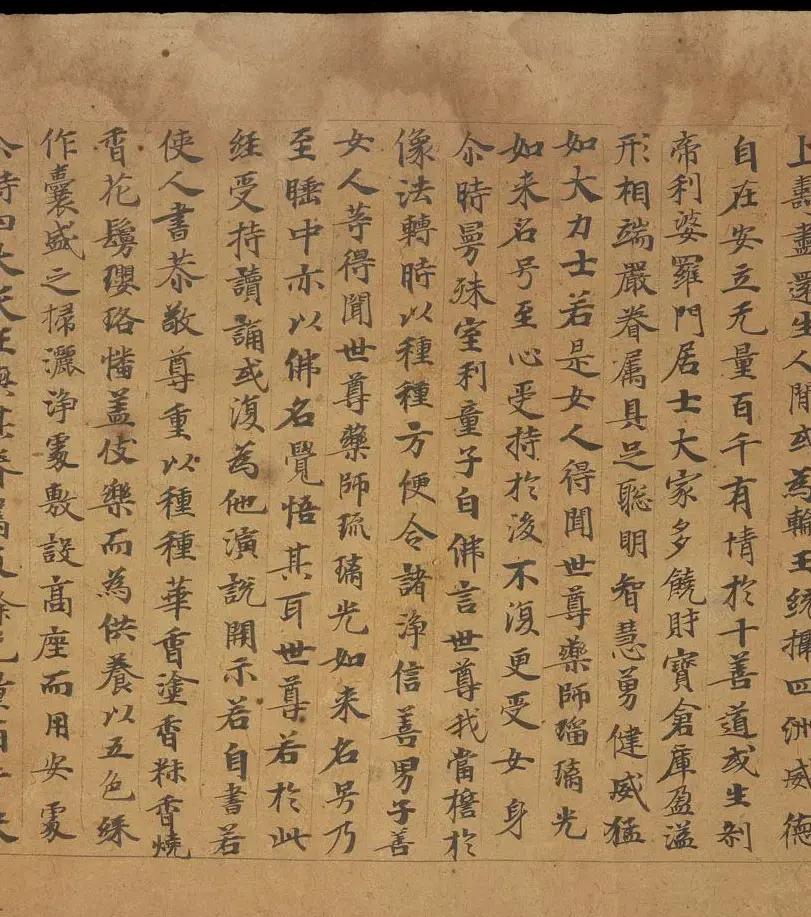 上壽盡還生人間或為輪王統攝四洲威德
自在安立无量百千有情於十善道或生剎
帝利婆羅門居士大家多饒財寶倉庫盈溢
形相端嚴眷属具足聡明智慧勇健威猛
如大力士若是女人得聞世尊藥師瑠璃光
如来名号至心受持於後不復更受女身
尒時曼殊室利童子白佛言世尊我當檐於
像法轉時以種種方便令諸淨信善男子善
女人等得聞世尊藥師琉璃光如来名号乃
至睡中亦以佛名覺悟其耳世尊若於此
經受持讀誦或復為他演說開示若自書若
使人書恭敬尊重以種種華香塗香粖香燒
香花鬘瓔珞幡盖伎樂而為供養以五色綵
作囊盛之掃灑淨處敷設高座而用安處
時四大天王與其眷属及餘无量百千天